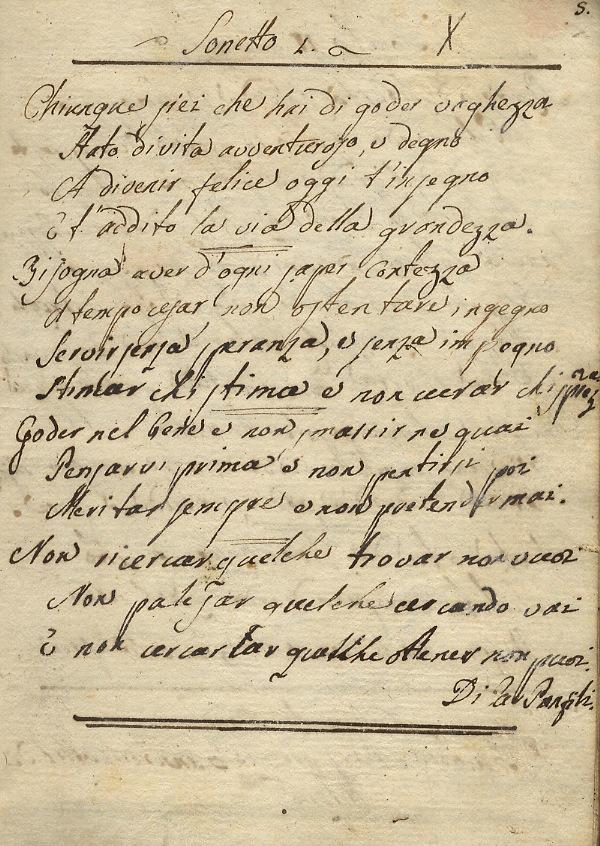 5.
Sonetto 1. X
Chiunque siei che hai di goder vaghezza
Stato di vita avventuroso, e degno
A divenir felice oggi t'insegno
E t'addito la via della grandezza.
Bisogna aver d'ogni saper contezza
A tempo usar non ostentare ingegno
Servir senza speranza, e senza impegno
Stimar chi stima e non curar chi sprezza
Goder nel Bene e non smarrir ne guai
Pensarvi prima e non pentirsi poi
Meritar sempre e non pretender mai.
Non ricercar quelche trovar non vuoi
Non palesar quelche cercando vai
E non cercar quelche ottener non puoi.
Di